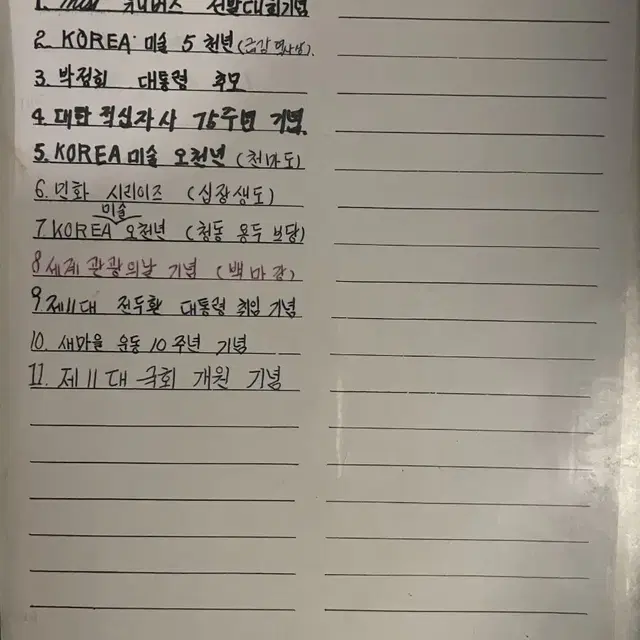 1. 유니버스 선발대회기념
2. KOREA 미술 5천년
3. 박정희 대통령 추모
4. 대한 적십자사 75주년 기념.
5. KOREA 미술 오천년 (천마도)
6. 민화 시리이즈 (십장생도)
미술
7 KOREA 오천년 (청동 용두 보당)
8 세계 관광의날 기념 (백마강)
9 제11대 전두환 대통령 취임 기념
10. 새마을 운동 10주년 기념
11. 제11대 국회 개원 기념